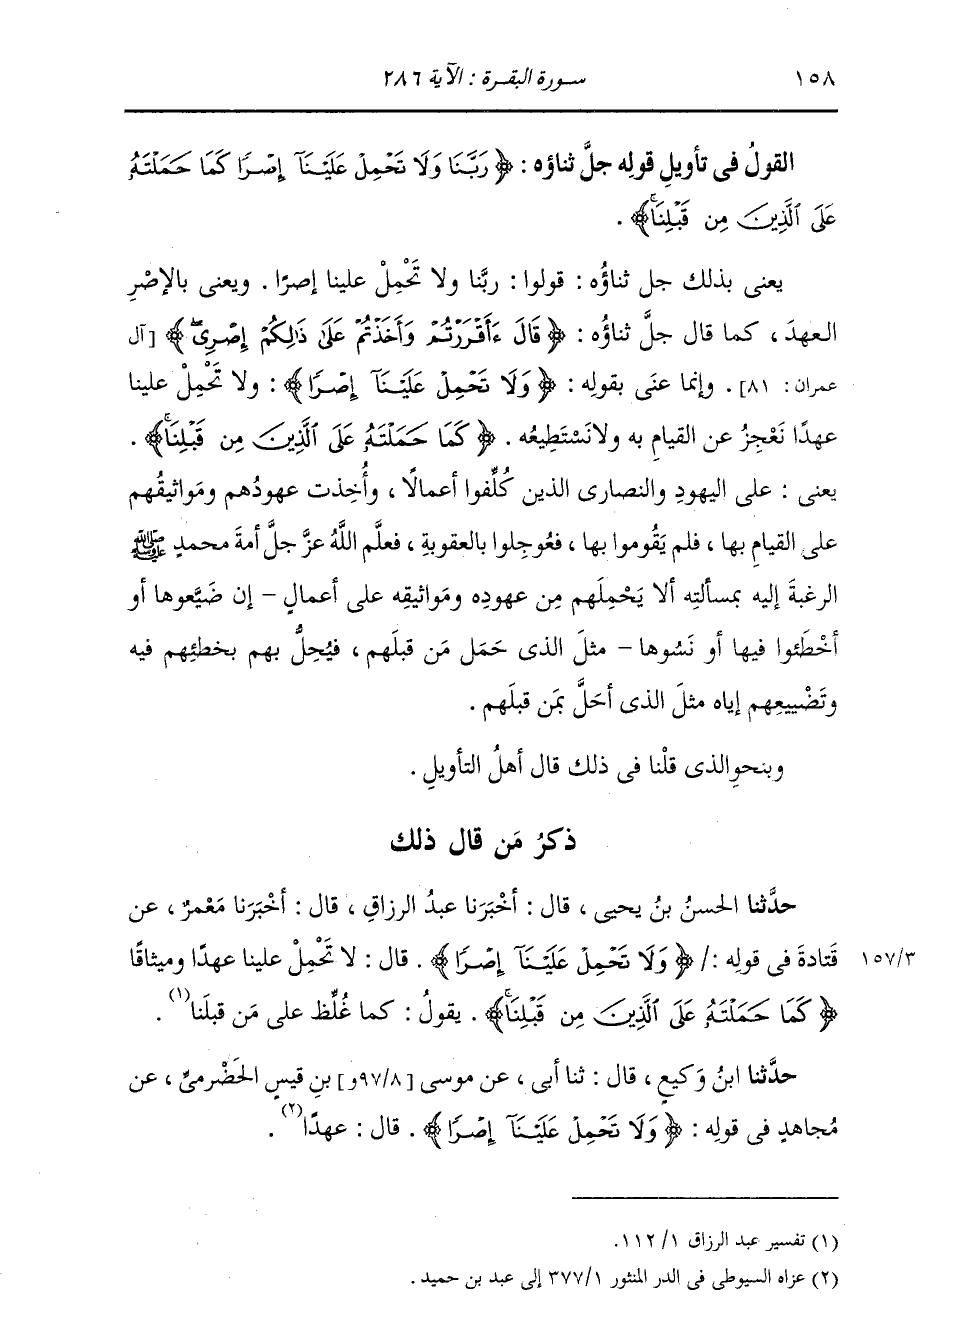 ١٥٨ سورة البقرة : الآية ٢٨٦
القولُ فى تأويلِ قولِه جلَّ ثناؤه : ﴿ رَبَّنَا وَلَا تَحْمِلْ عَلَيْنَآ إِصْرًا كَمَا حَمَلْتَهُۥ
عَلَى ٱلَّذِينَ مِن قَبْلِنَاۚ ﴾ .
يعنى بذلك جل ثناؤُه : قولوا : ربَّنا ولا تَحْمِلْ علينا إصرًا . ويعنى بالإصْرِ
العهدَ ، كما قال جلَّ ثناؤُه : ﴿ قَالَ ءَأَقْرَرْتُمْ وَأَخَذْتُمْ عَلَىٰ ذَٰلِكُمْ إِصْرِىۖ ﴾ [ آل
عمران : ٨١] . وإنما عنَى بقولِه : ﴿ وَلَا تَحْمِلْ عَلَيْنَآ إِصْرًا ﴾ : ولا تَحْمِلْ علينا
عهدًا نَعْجِزُ عن القيامِ به ولا نَسْتَطِيعُه . ﴿ كَمَا حَمَلْتَهُۥ عَلَى ٱلَّذِينَ مِن قَبْلِنَاۚ ﴾ .
يعنى : على اليهودِ والنصارى الذين كُلِّفوا أعمالًا ، وأُخِذت عهودُهم ومَواثيقُهم
على القيامِ بها ، فلم يَقُوموا بها ، فعُوجِلوا بالعقوبةِ ، فعلَّم اللَّهُ عزَّ جلَّ أمةَ محمدٍ ﷺ
الرغبةَ إليه بمسألتِه ألا يَحْمِلَهم مِن عهودِه ومَواثيقِه على أعمالٍ - إن ضَيَّعوها أو
أخْطَئوا فيها أو نَسُوها - مثلَ الذى حَمَل مَن قبلَهم ، فيُحِلُّ بهم بخطئِهم فيه
وتَضْييعِهم إياه مثلَ الذى أحَلَّ بمَن قبلَهم .
وبنحوِ الذى قلْنا فى ذلك قال أهلُ التأويلِ .
ذكرُ مَن قال ذلك
حدَّثنا الحسنُ بنُ يحيى ، قال : أخْبَرَنا عبدُ الرزاقِ ، قال : أخْبَرَنا مَعْمرٌ ، عن
١٥٧/٣ قَتادةَ فى قولِه :/ ﴿ وَلَا تَحْمِلْ عَلَيْنَآ إِصْرًا ﴾ . قال : لا تَحْمِلْ علينا عهدًا وميثاقًا
﴿ كَمَا حَمَلْتَهُۥ عَلَى ٱلَّذِينَ مِن قَبْلِنَاۚ ﴾ . يقولُ : كما غُلِّظ على مَن قبلَنا(١) .
حدَّثنا ابنُ وَكيعٍ ، قال : ثنا أبى ، عن موسى [٩٧/٨و] بنِ قيسٍ الحَضْرميِّ ، عن
مُجاهدٍ فى قولِه : ﴿ وَلَا تَحْمِلْ عَلَيْنَآ إِصْرًا ﴾ . قال : عهدًا(٢) .
(١) تفسير عبد الرزاق ١/ ١١٢.
(٢) عزاه السيوطى فى الدر المنثور ٣٧٧/١ إلى عبد بن حميد .